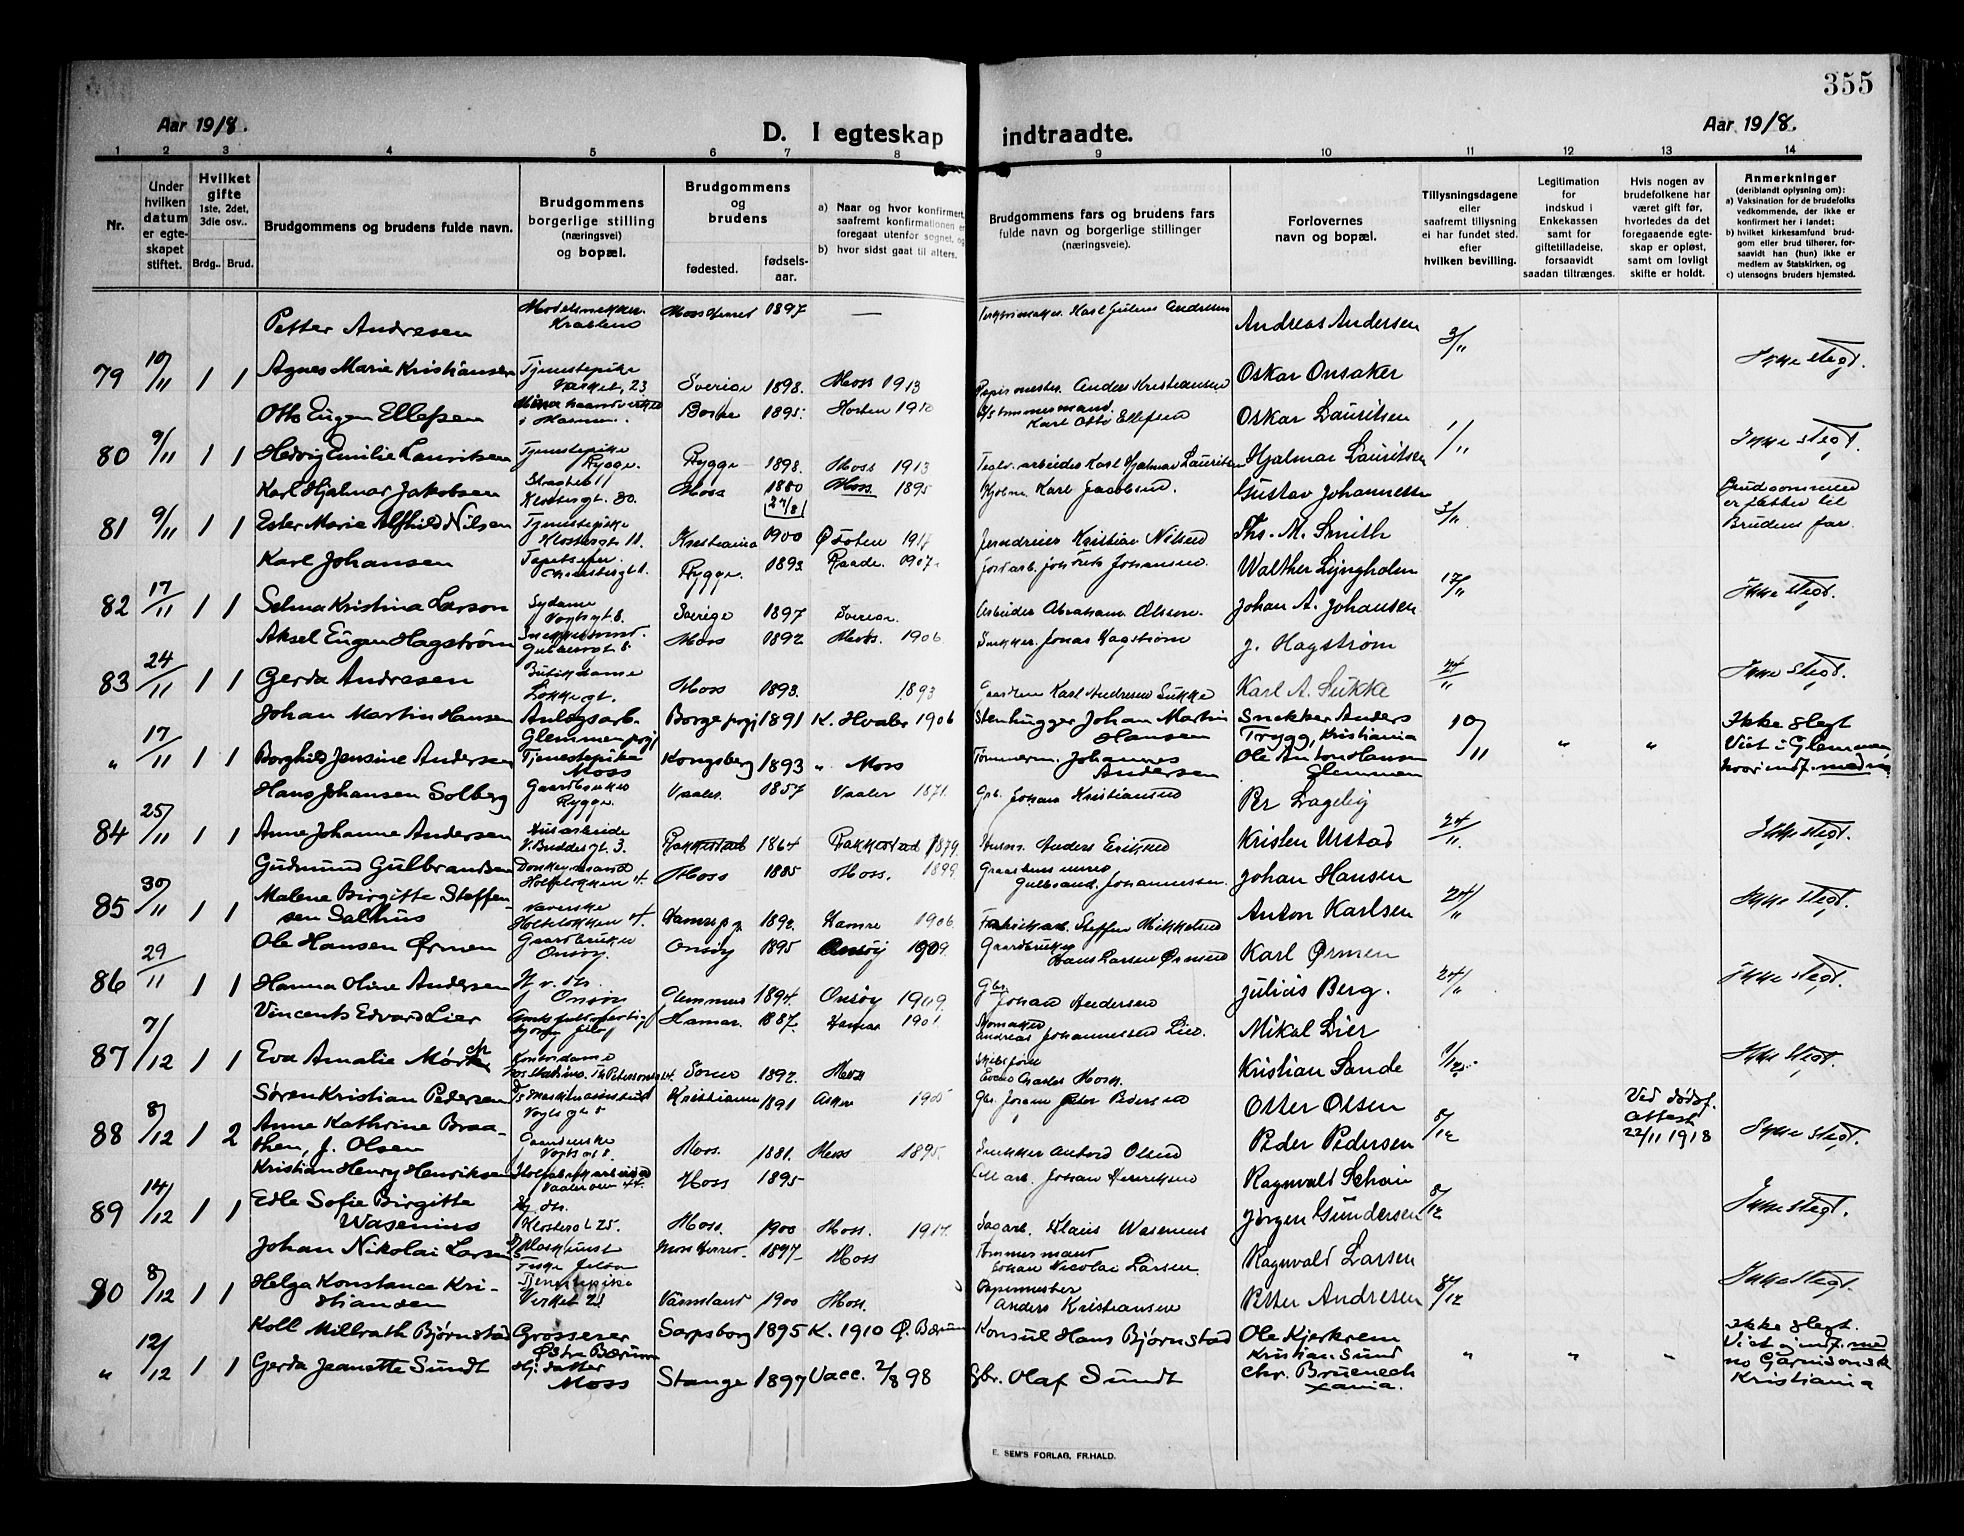 355
Aar 1918.
D. I egteskap indtraadte.
Aar 1918.
1 2 3 4 5 6 7 8 9 10 11 12 13 14
Nr.
Under hvilken datum er egte-skapet stiftet.
Hvilket gifte 1ste, 2det, 3die osv..
Brdg.. Brud.
Brudgommens og brudens fulde navn.
Brudgommens borgerlige stilling (næringsvei) og bopæl.
Brudgommens og brudens
fødested.
fødsels-aar.
a) Naar og hvor konfirmert, saafremt konfirmationen er foregaat utenfor sognet, og
b) hvor sidst gaat til alters.
Brudgommens fars og brudens fars fulde navn og borgerlige stillinger (næringsveie).
Forlovernes navn og bopæl.
Tillysningsdagene eller saafremt tillysning ei har fundet sted. efter hvilken bevilling.
Legitimation for indskud i Enkekassen samt for giftetilladelse, forsaavidt saadan tiltrænges.
Hvis nogen av brudefolkene har været gift før, hvorledes da det foregaaende egte-skap er opløst, samt om lovligt skifte er holdt.
Anmerkninger (deriblandt oplysning om):
a) Vaksination for de brudefolks vedkommende, der ikke er konfirmert her i landet;
b) hvilket kirkesamfund brud-gom eller brud tilhører, for-saavidt han (hun) ikke er medlem av Statskirken, og
c) utensogns bruders hjemsted.
Petter Andresen Moss Herred 1897 — Andreas Andersen
79 10/11 1 1 Agnes Marie Kristiansen Tjenestepike Værket, 23 Sverige 1898. Moss 1913 Anders Kristiansen Oskar Onsaker 3/11 Ikke slegt.
Otto Eugen Ellefsen Borre 1895. Horten 1910 Tømmermand. Karl Otto Ellefsen Oskar Lauritsen
80 9/11 1 1 Hedvig Emilie Lauritsen Tjenestepike Rygge. Rygge 1898. Moss 1913 Karl Hjalmar Lauritsen Hjalmar Lauritsen 1/11 Ikke slegt.
Karl Hjalmar Jakobsen Klostergt. 20. Moss 1880 27/8 Moss 1895 Karl Jacobsen. Gustav Johannesen Brudgommen er fætter til Brudens far.
81 9/11 1 1 Ester Marie Alfhild Nilsen Tjenestepike Klostergt 11. Kristiania 1900 Ø Toten Kristian Nilsen Ths. M. Smith 3/11
Karl Johansen Rygge. 1893 Raade. 1907. Johansen. Walther Lyngholm
82 17/11 1 1 Selma Kristina Larson Sydame Vogtsgt 8. Sverige 1897 Sverige. Arbeider Abraham Olsson. Johan A. Johansen 17/11 Ikke slegt.
Aksel Eugen Hagstrøm Moss 1892 Moss. 1906 Snekker. Jonas Hagstrøm J. Hagstrøm
83 24/11 1 1 Gerda Andresen Butikdame Løkkegt. Moss 1898. 1893 Karl Andresen Sukke Karl A. Sukke 24/11 Ikke slegt.
Johan Martin Hansen Anlegsarb. Glemmen prgj Borge prgj 1891 K. Hvaler 1906 Stenhugger Johan Martin Hansen Snekker Anders Trygg, Kristiania 10/11 Ikke slegt
" 17/11 1 1 Borghild Jensine Andersen Tjenestepike Moss Kongsberg 1893 " Moss Tømmerm. Johannes Andersen Ole Anton Hansen Glemmen " " Viet i Glemmen hvor indf. med no
Hans Johansen Solberg Gaardbruker Rygge. Vaaler. 1857 Vaaler 1871. Gbr. Johan Kristiansen Per Lagelig
84 25/11 1 1 Anne Johanne Andersen Husarbeide V. Buddesgt. 3. Rakkestad 1864 Rakkestad 1879 Anders Eriksen Kristen Urstad 24/11. Ikke slegt.
Gudmund Gulbrandsen Donkeymand Holteløkken 4. Moss 1885 Moss. 1899 Gulbrand. Johannessen. Johan Hansen
85 30/11 1 1 Malene Birgitte Steffen-sen Salhus Holteløkken 4. Hamre pg. 1892 Hamre 1906. Steffen Mikkelsen Anton Karlsen 24/11 Ikke slegt.
Ole Hansen Ørmen Gaardbruker Onsøy. Onsøy 1895 Onsøy 1909. Gaardbruker Hans Larsen Ørmen Karl Ørmen
86 29/11 1 1 Hanna Oline Andersen H. v. ds. Onsøy Glemmen 1894. Onsøy 1909. Gbr. Johan Andersen Julius Berg. 24/11 Ikke slegt.
Vincents Edvard Lier Hamar. 1887. Hamar 1901. Andreas Johannessen Lier. Mikal Lier
87 7/12 1 1 Eva Amalie Mørch Kontordame 1892. Moss Skibsfører Kristian Sande 1/12. Ikke slegt.
Søren Kristian Pedersen Vogtsgt 8 Kristiania 1891 Asker 1905 Gbr. Johan Peter Pedersen Otter Olsen Ved dødsf. attest 22/11 1918
88 8/12 1 2 Anne Kathrine Braa-then, f. Olsen Vogtsgt 8. Moss. 1881. Moss 1895. Snekker Olsen Peder Pedersen 8/12 Ikke slegt.
Kristian Henry Henriksen Moss 1895 Johan Henriksen Ragnvald Schou
89 14/12 1 1 Edle Sofie Birgitte Wasenius Hj. ds. Klostergt 25. Moss. 1900 Moss. 1914. Sagarb. Klaus Wasenius Jørgen Gundersen 8/12 Ikke slegt.
Johan Nikolai Larsen Moss Herred 1897 Moss Tømmermand Johan Nicolai Larsen. Ragnvald Larsen
90 8/12 1 1 Helga Konstance Kri-stiansen Tjenestepike Verket 23 Värmland 1900 Moss. Papirmester Anders Kristiansen Petter Andresen 8/12 Ikke slegt.
Koll Millrath Bjørnstad Grosserer Østre Bærum Sarpsborg 1895 K. 1910 Ø. Bærum Konsul Hans Bjørnstad Ole Kjerkrem Kristian Sund Ikke slegt.
" 12/12 1 1 Gerda Jeanette Sundt Hj. datter Moss Stange 1897 Vacc. 2/8 98 Gbr. Olaf Sundt Chr. Bruenech Xania. " " " Viet og indf. med no Garnisonsk Kristiania
E. SEM'S FORLAG, FR.HALD.